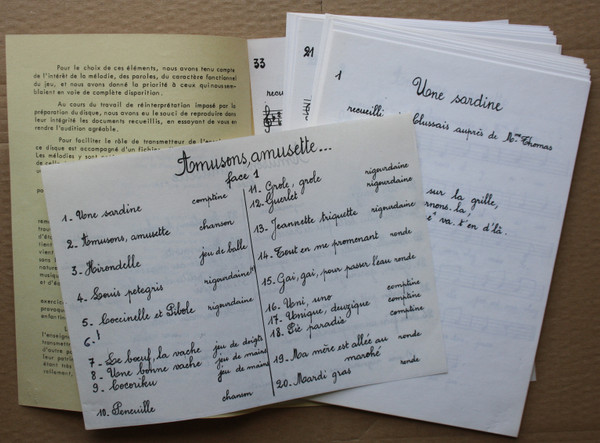 Pour le choix de ces éléments, nous avons tenu compte
de l'intérêt de la mélodie, des paroles, du caractère fonctionnel
du jeu, et nous avons donné la priorité à ceux qui nous sem-
blaient en voie de complète disparition.
Au cours du travail de réinterprétation imposé par la
préparation du disque, nous avons eu le souci de reproduire dans
leur intégrité les documents recueillis, en essayant de vous en
rendre l'audition agréable.
Pour faciliter le rôle de transmetteur de
ce disque est accompagné d'un fichier
Les mélodies y sont
33
recueil
21
1
Une sardine
recueilli Clussais auprès de Mme Thomas
sur la grille,
nons-la,
va-t'en d'là.
Amusons, amusette...
face 1
1. Une sardine comptine
2. Amusons, amusette chanson
3. Hirondelle jeu de balle
4. Louis petegris rigourdaine
5. Coccinelle et Pibole rigourdaine
6.
7. Le bœuf, la vache jeu de doigts
8. Une bonne vache jeu de mains
9. Cocoriku jeu de mains
10. Peneuille chanson
11. Grole, grole rigourdaine
12. Guerlet rigourdaine
13. Jeannette triquette rigourdaine
14. Tout en me promenant ronde
15. Gai, gai, pour passer l'eau ronde
16. Uni, uno comptine
17. Unique, deuzique comptine
18. Pié paradis comptine
19. Ma mère est allée au marché ronde
20. Mardi gras ronde